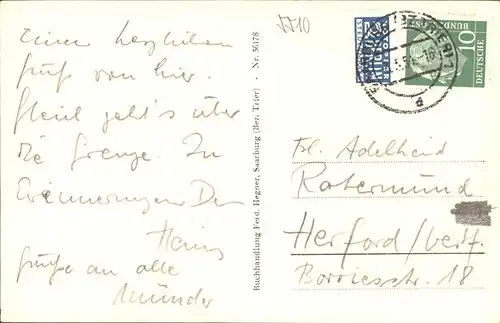 Einen herzlichen
Gruß von hier.
Gleich geht's über
die Grenze. In
Erinnerungen Dein
Heinz
Grüße an alle
Münder
Buchhandlung Ferd. Hegner, Saarburg (Bez. Trier) · Nr. 50178
10
DEUTSCHE
BUNDESPOST
NOTOPFER
2
BERLIN
(BZ TRIER) 1
Frl. Adelheid
Rotermund
Herford/Westf.
Borriesstr. 18